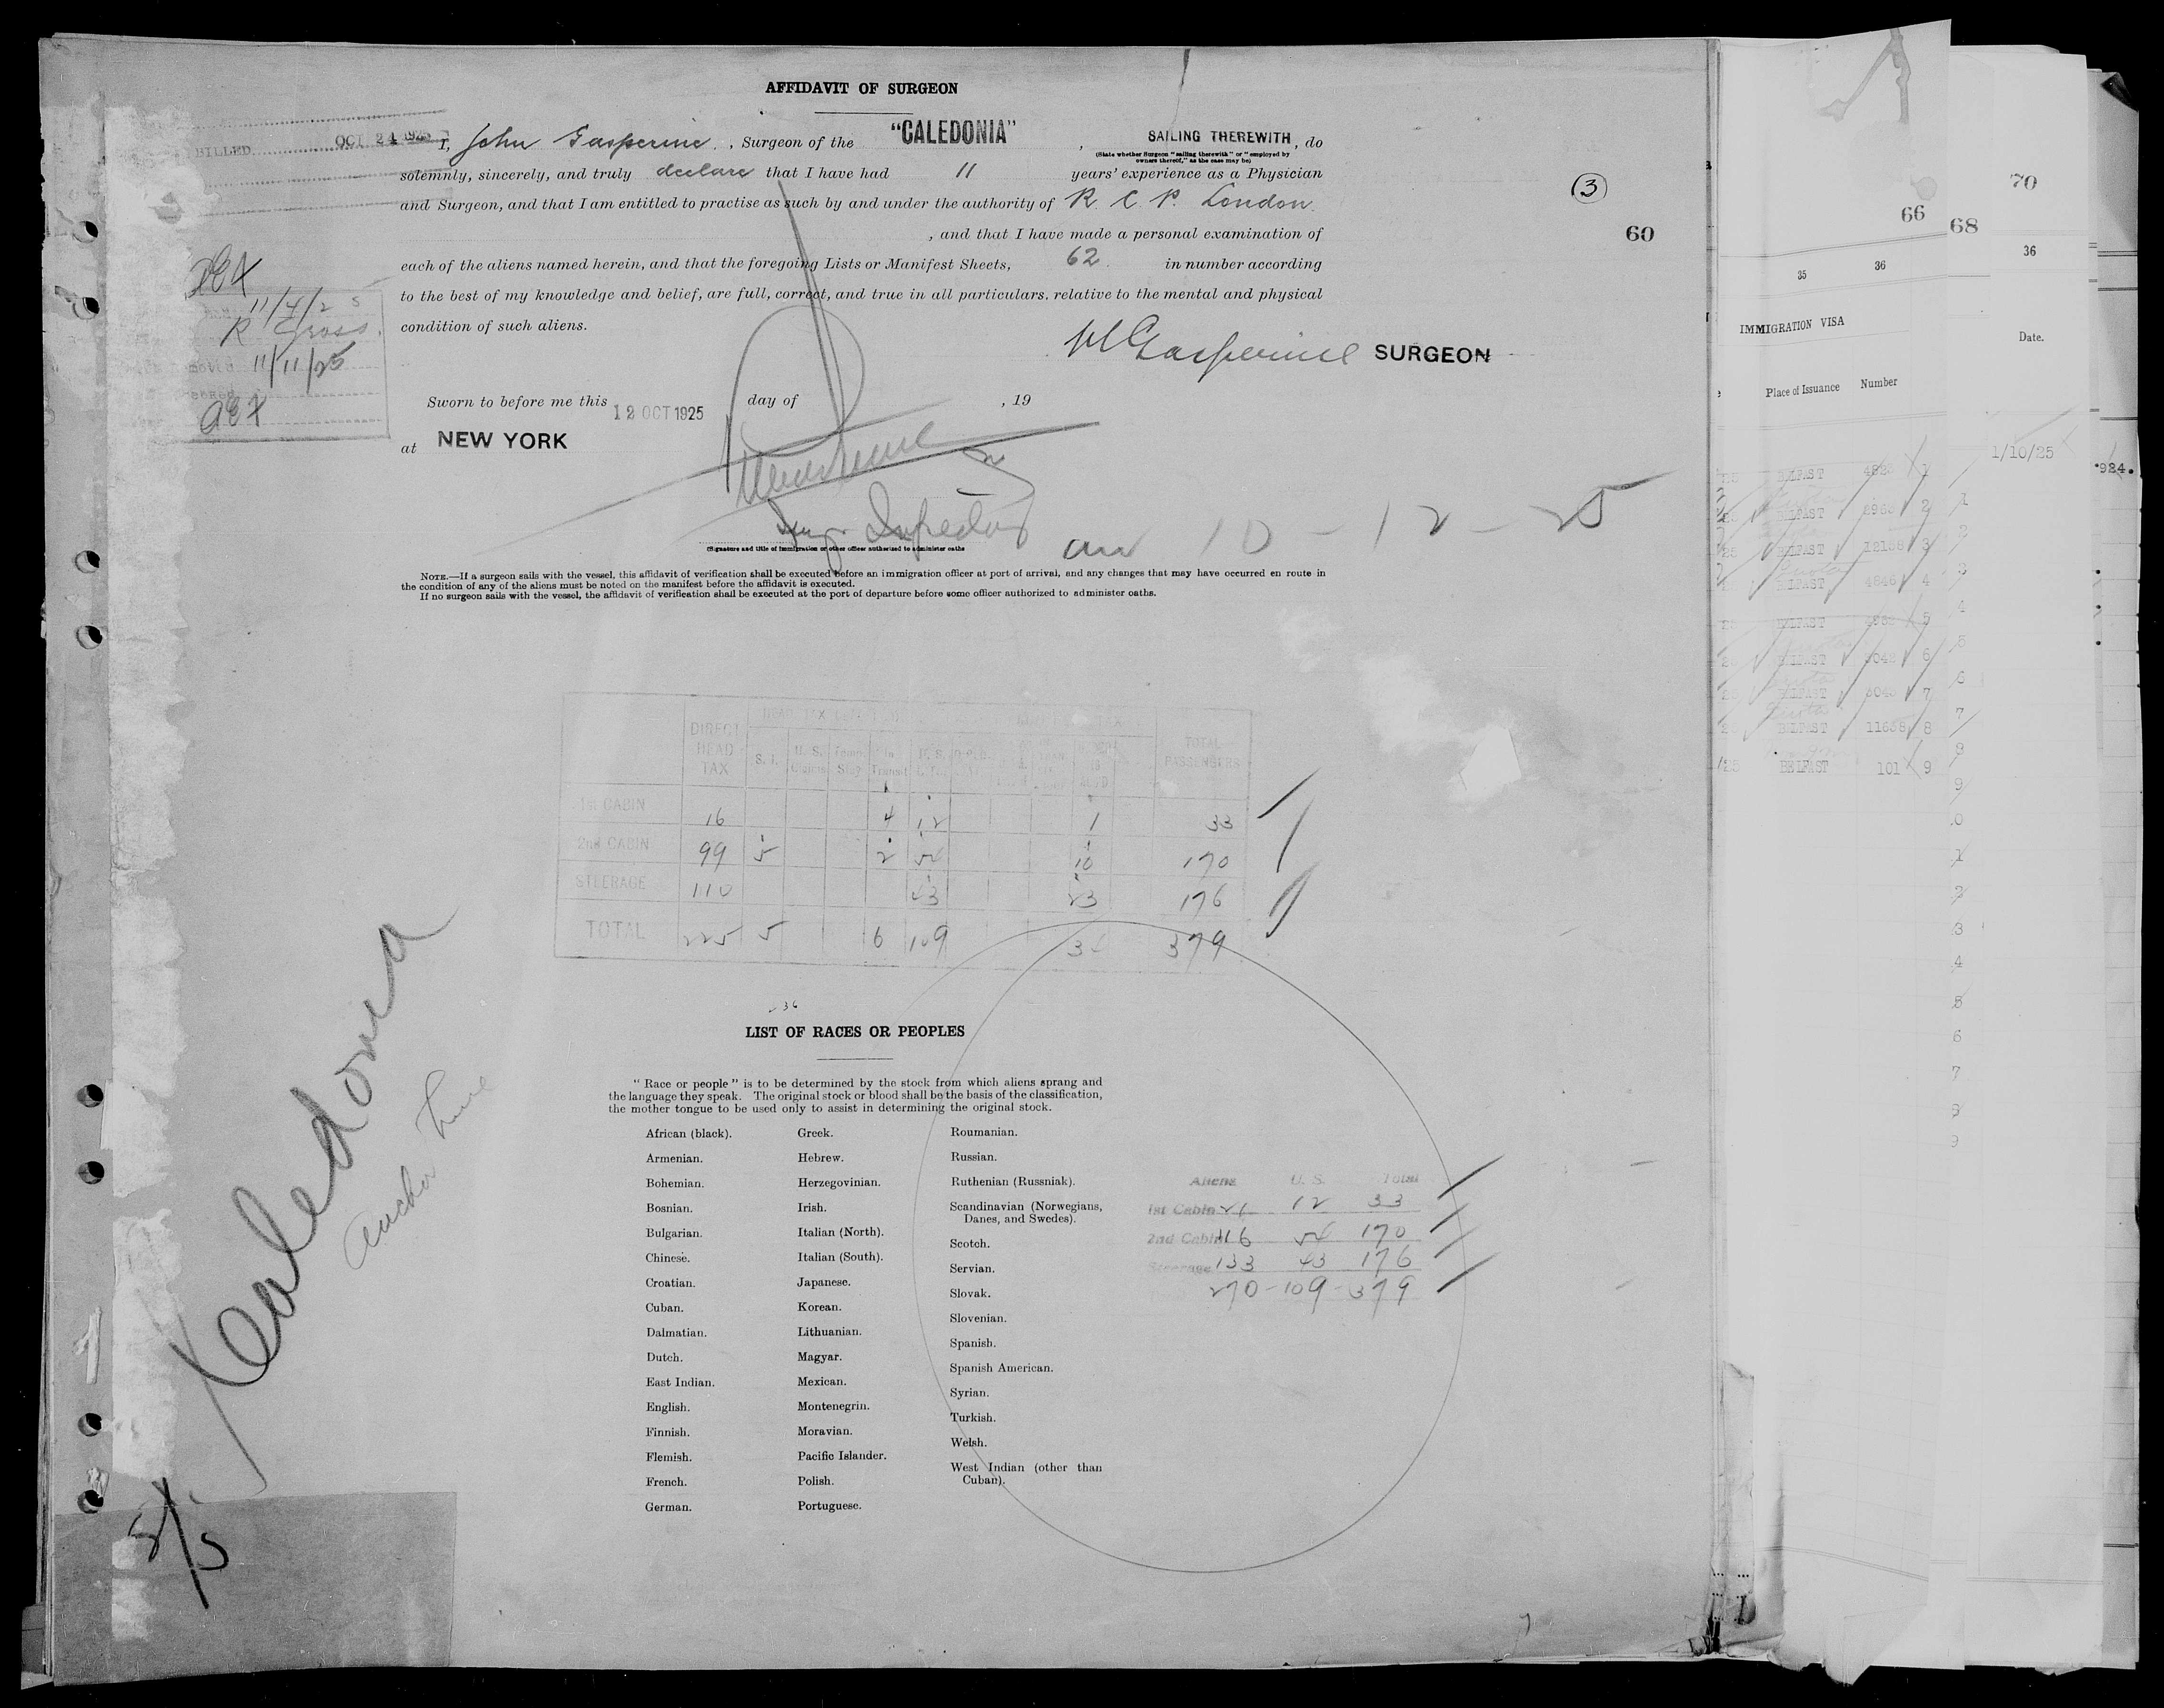 AFFIDAVIT OF SURGEON
BILLED OCT 24 1925
I, John Gasperine, Surgeon of the "CALEDONIA", SAILING THEREWITH, do
(State whether Surgeon "sailing therewith" or "employed by
owners thereof," as the case may be)
solemnly, sincerely, and truly declare that I have had 11 years' experience as a Physician
and Surgeon, and that I am entitled to practise as such by and under the authority of R. C. P. London
, and that I have made a personal examination of
each of the aliens named herein, and that the foregoing Lists or Manifest Sheets, 62 in number according
to the best of my knowledge and belief, are full, correct, and true in all particulars, relative to the mental and physical
condition of such aliens.
Gasperine SURGEON
3
60
11/4/25
R Gross
11/11/25
Sworn to before me this 12 OCT 1925 day of , 19
at NEW YORK
Inspector
(Signature and title of immigration or other officer authorized to administer oaths
arr 10-12-25
NOTE.—If a surgeon sails with the vessel, this affidavit of verification shall be executed before an immigration officer at port of arrival, and any changes that may have occurred en route in
the condition of any of the aliens must be noted on the manifest before the affidavit is executed.
If no surgeon sails with the vessel, the affidavit of verification shall be executed at the port of departure before some officer authorized to administer oaths.
DIRECT HEAD TAX S.I. U.S. Temp. Stay In Transit U.S. TOTAL PASSENGERS
1st CABIN 16 4 12 1 33
2nd CABIN 99 5 2 54 10 170
STEERAGE 110 43 23 176
TOTAL 225 5 6 109 34 379
36
LIST OF RACES OR PEOPLES
"Race or people" is to be determined by the stock from which aliens sprang and
the language they speak. The original stock or blood shall be the basis of the classification,
the mother tongue to be used only to assist in determining the original stock.
African (black).
Armenian.
Bohemian.
Bosnian.
Bulgarian.
Chinese.
Croatian.
Cuban.
Dalmatian.
Dutch.
East Indian.
English.
Finnish.
Flemish.
French.
German.
Greek.
Hebrew.
Herzegovinian.
Irish.
Italian (North).
Italian (South).
Japanese.
Korean.
Lithuanian.
Magyar.
Mexican.
Montenegrin.
Moravian.
Pacific Islander.
Polish.
Portuguese.
Roumanian.
Russian.
Ruthenian (Russniak).
Scandinavian (Norwegians,
Danes, and Swedes).
Scotch.
Servian.
Slovak.
Slovenian.
Spanish.
Spanish American.
Syrian.
Turkish.
Welsh.
West Indian (other than
Cuban).
Aliens U. S. Total
1st Cabin 21 12 33
2nd Cabin 116 54 170
Steerage 133 43 176
270-109-379
Caledonia
Anchor Line
66
35 36
IMMIGRATION VISA
Place of Issuance Number
BELFAST 1
BELFAST 2
BELFAST 12158 3
BELFAST 4846 4
BELFAST 5
BELFAST 6
BELFAST 7
BELFAST 11658 8
BELFAST 101 9
68
70
36
Date.
1/10/25
924.